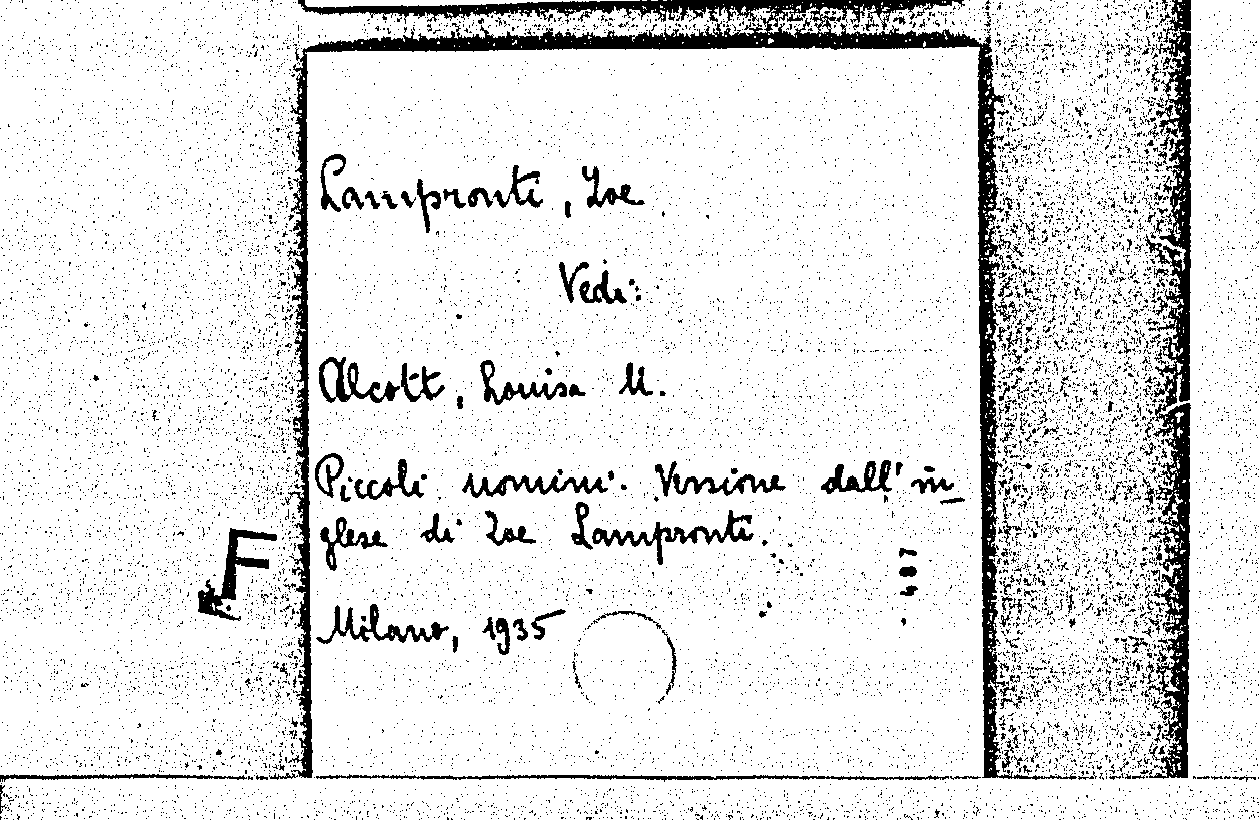 Lampronti, Zoe
Vedi:
Alcott, Louisa M.
Piccoli uomini. Versione dall'in-
glese di Zoe Lampronti.
Milano, 1935
487
F